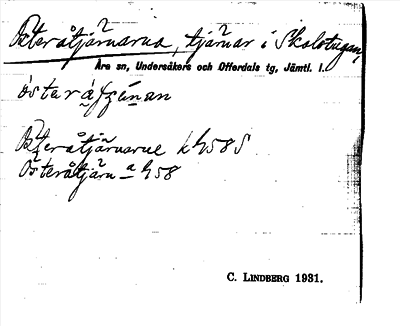 Österåtjärnarna, tjärnar i Skolstugan,
Åre sn, Undersåkers och Offerdals tg, Jämtl. l.
Österåtjärnarne k 458 S
Österåtjärn a 458
C. LINDBERG 1931.